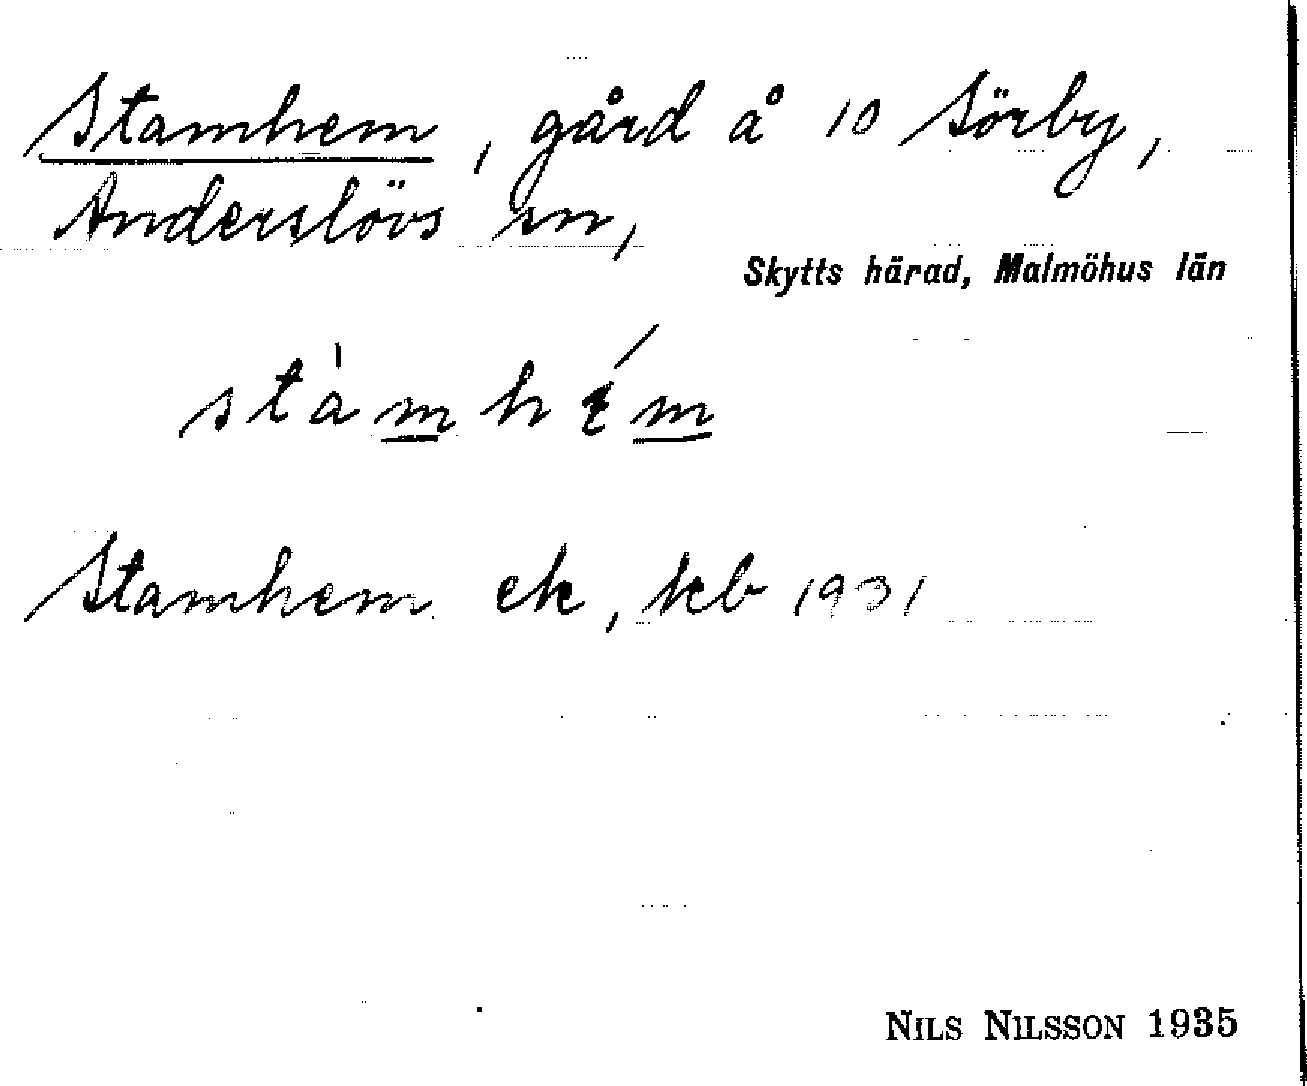 Stamhem, gård å 10 Sörby,
Anderslövs sn,
Skytts härad, Malmöhus län
stàmhɛ́m
Stamhem ek, kb 1931
NILS NILSSON 1935